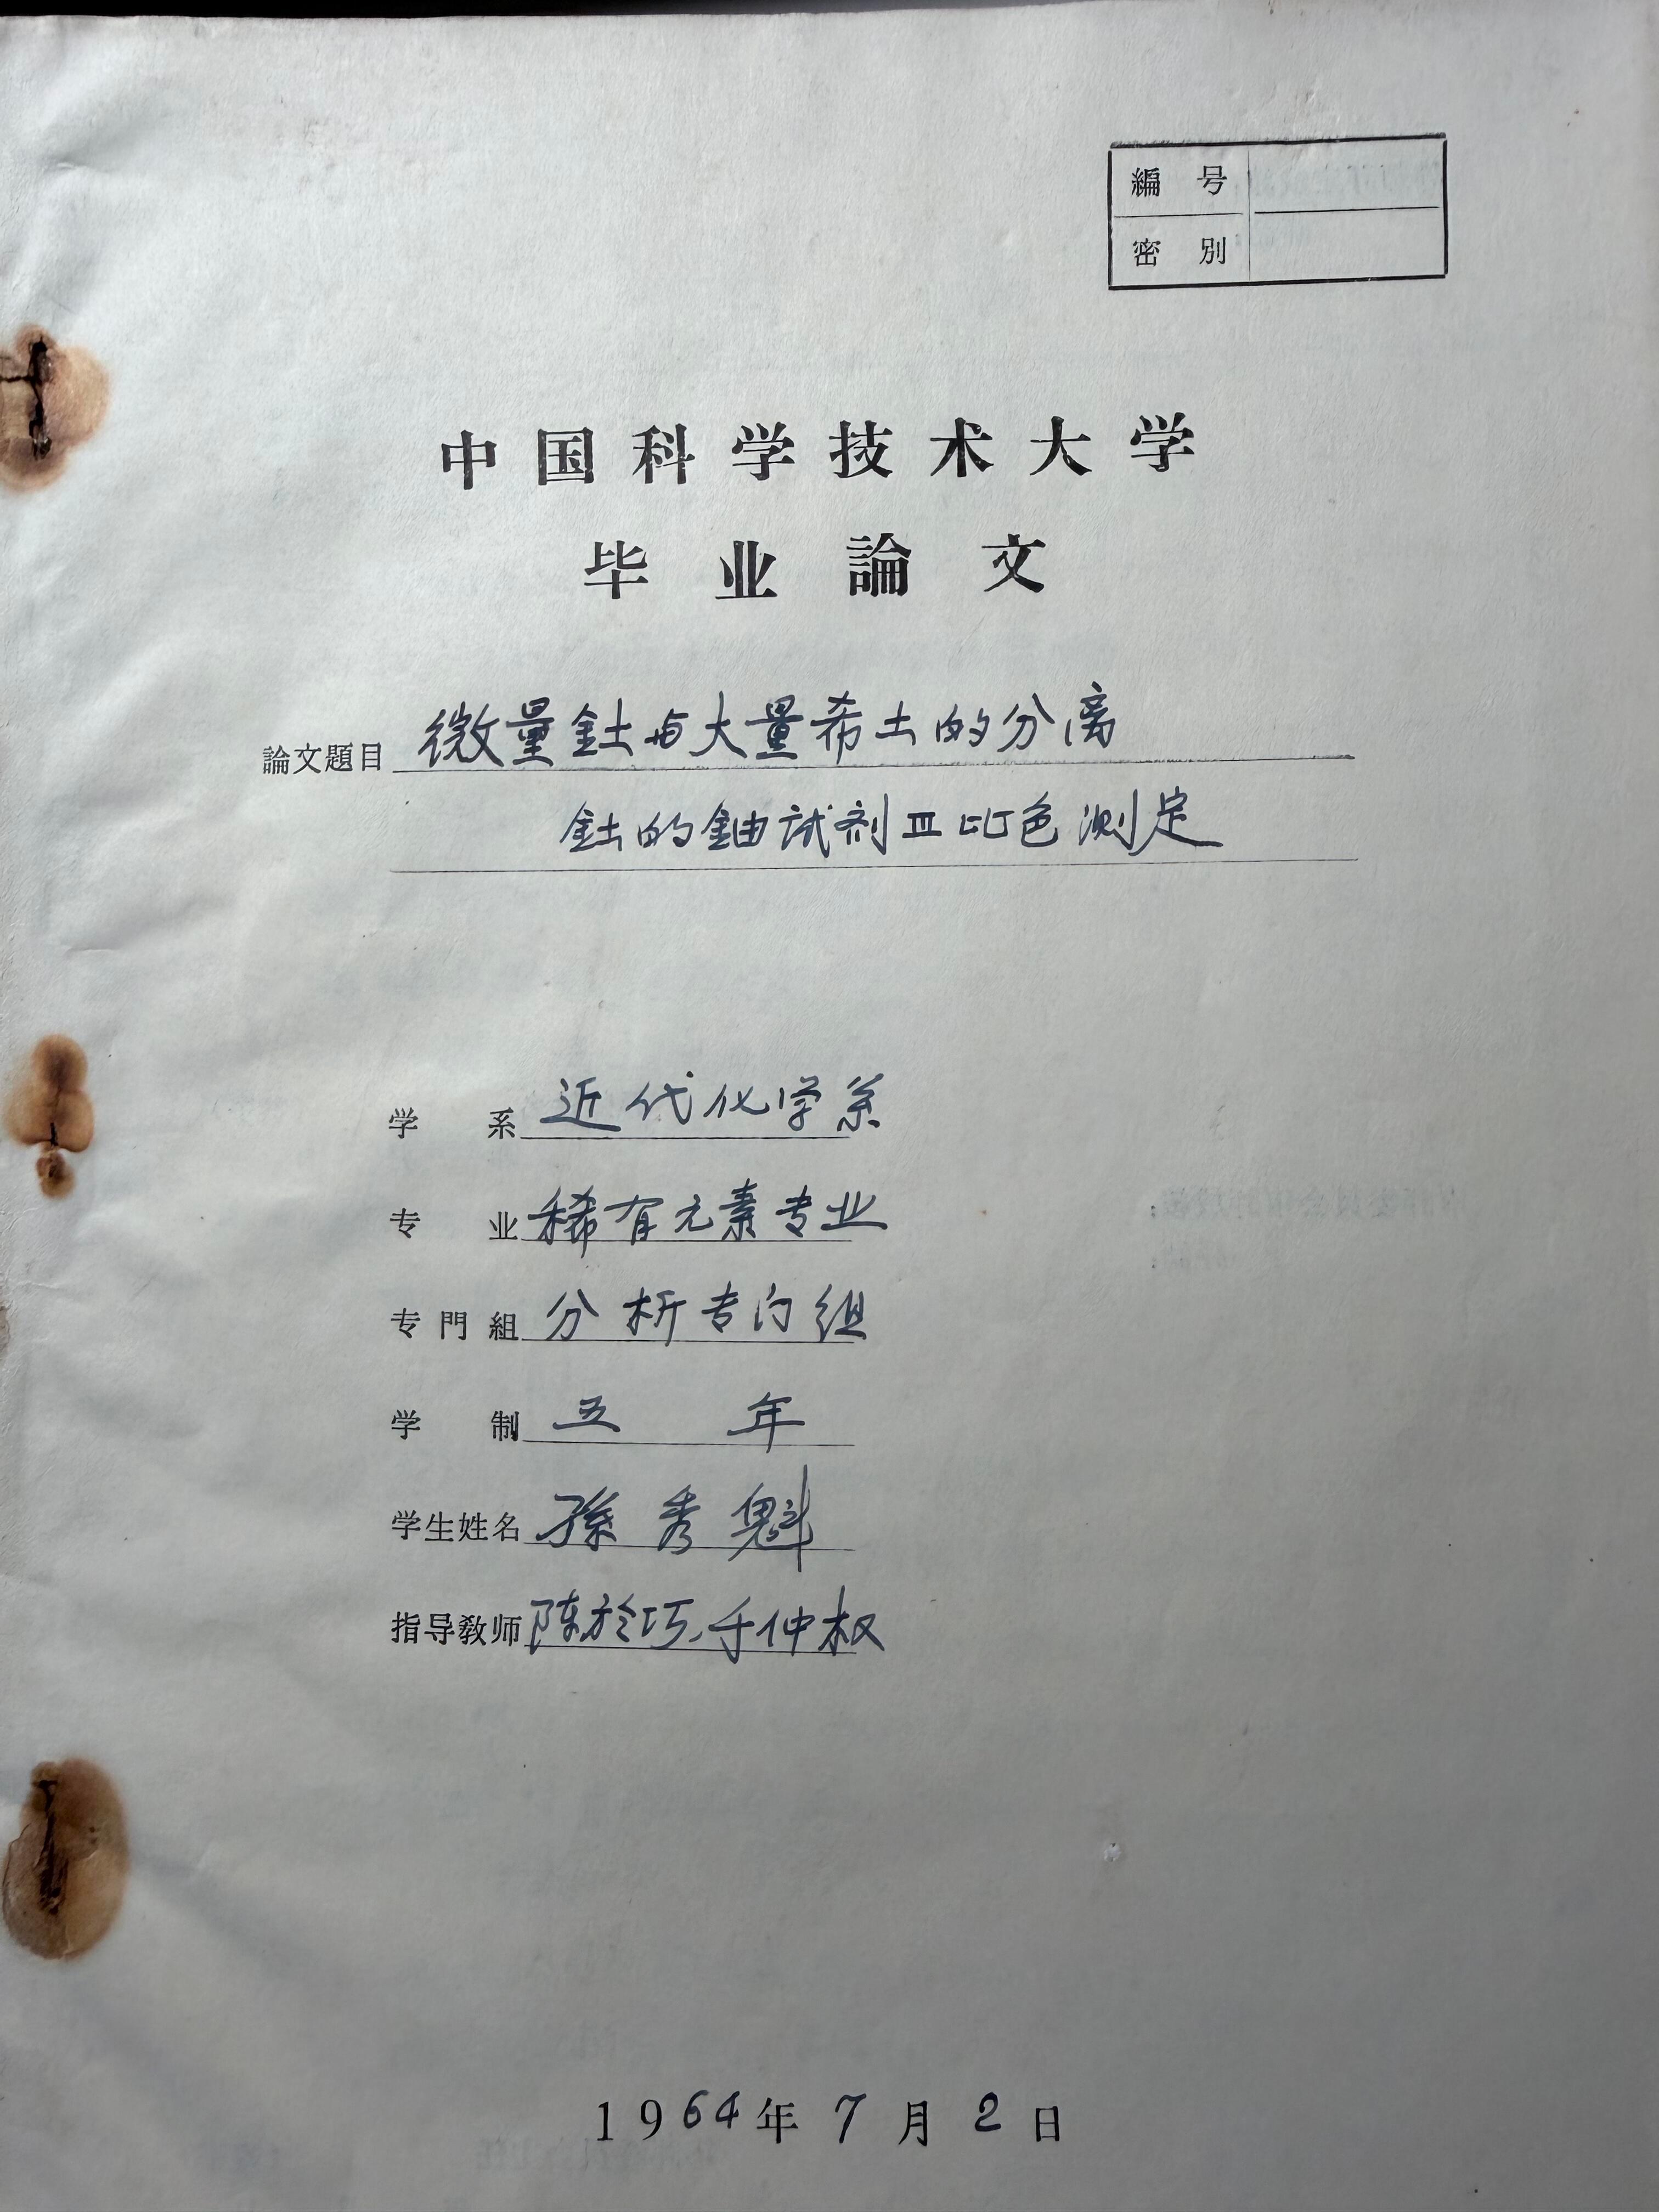 編号
密別
中国科学技术大学
毕业論文
論文題目 微量釷与大量希土的分离
釷的鈾试剂Ⅲ比色测定
学系 近代化学系
专业 稀有元素专业
专門組 分析专门组
学制 五年
学生姓名 孫秀魁
指导教师 陈於巧、于仲权
1964年7月2日